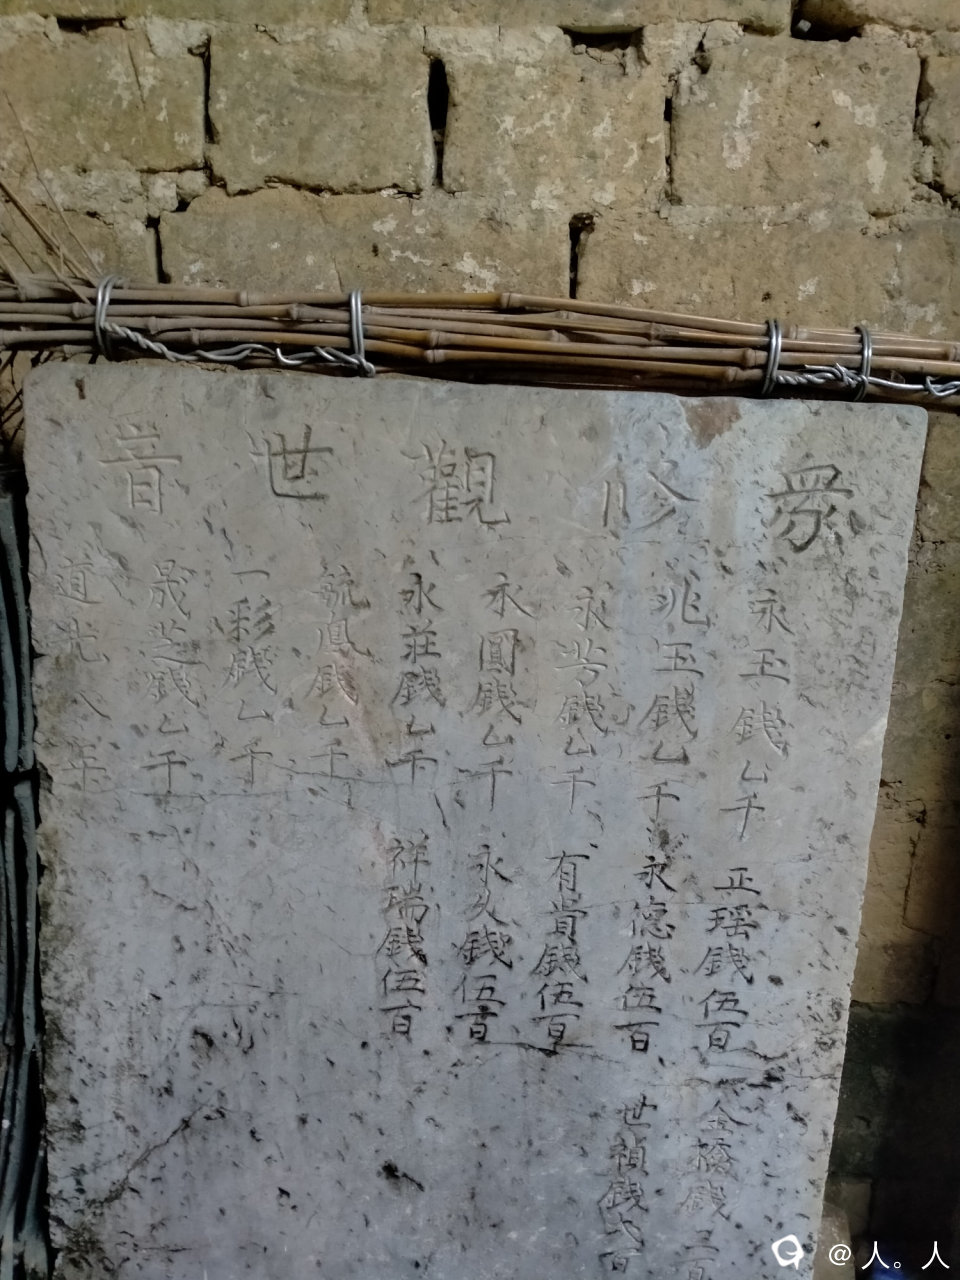 眾修觀世音
永玉錢乙千
正瑶錢伍百
金橋錢
兆玉錢乙千
永德錢伍百
世禎錢
永誉錢乙千
有貴錢伍百
永圓錢乙千
永久錢伍百
永莊錢乙千
祥瑞錢伍百
毓鳳錢乙千
一彩錢乙千
晟芝錢乙千
道光八年
@人。人